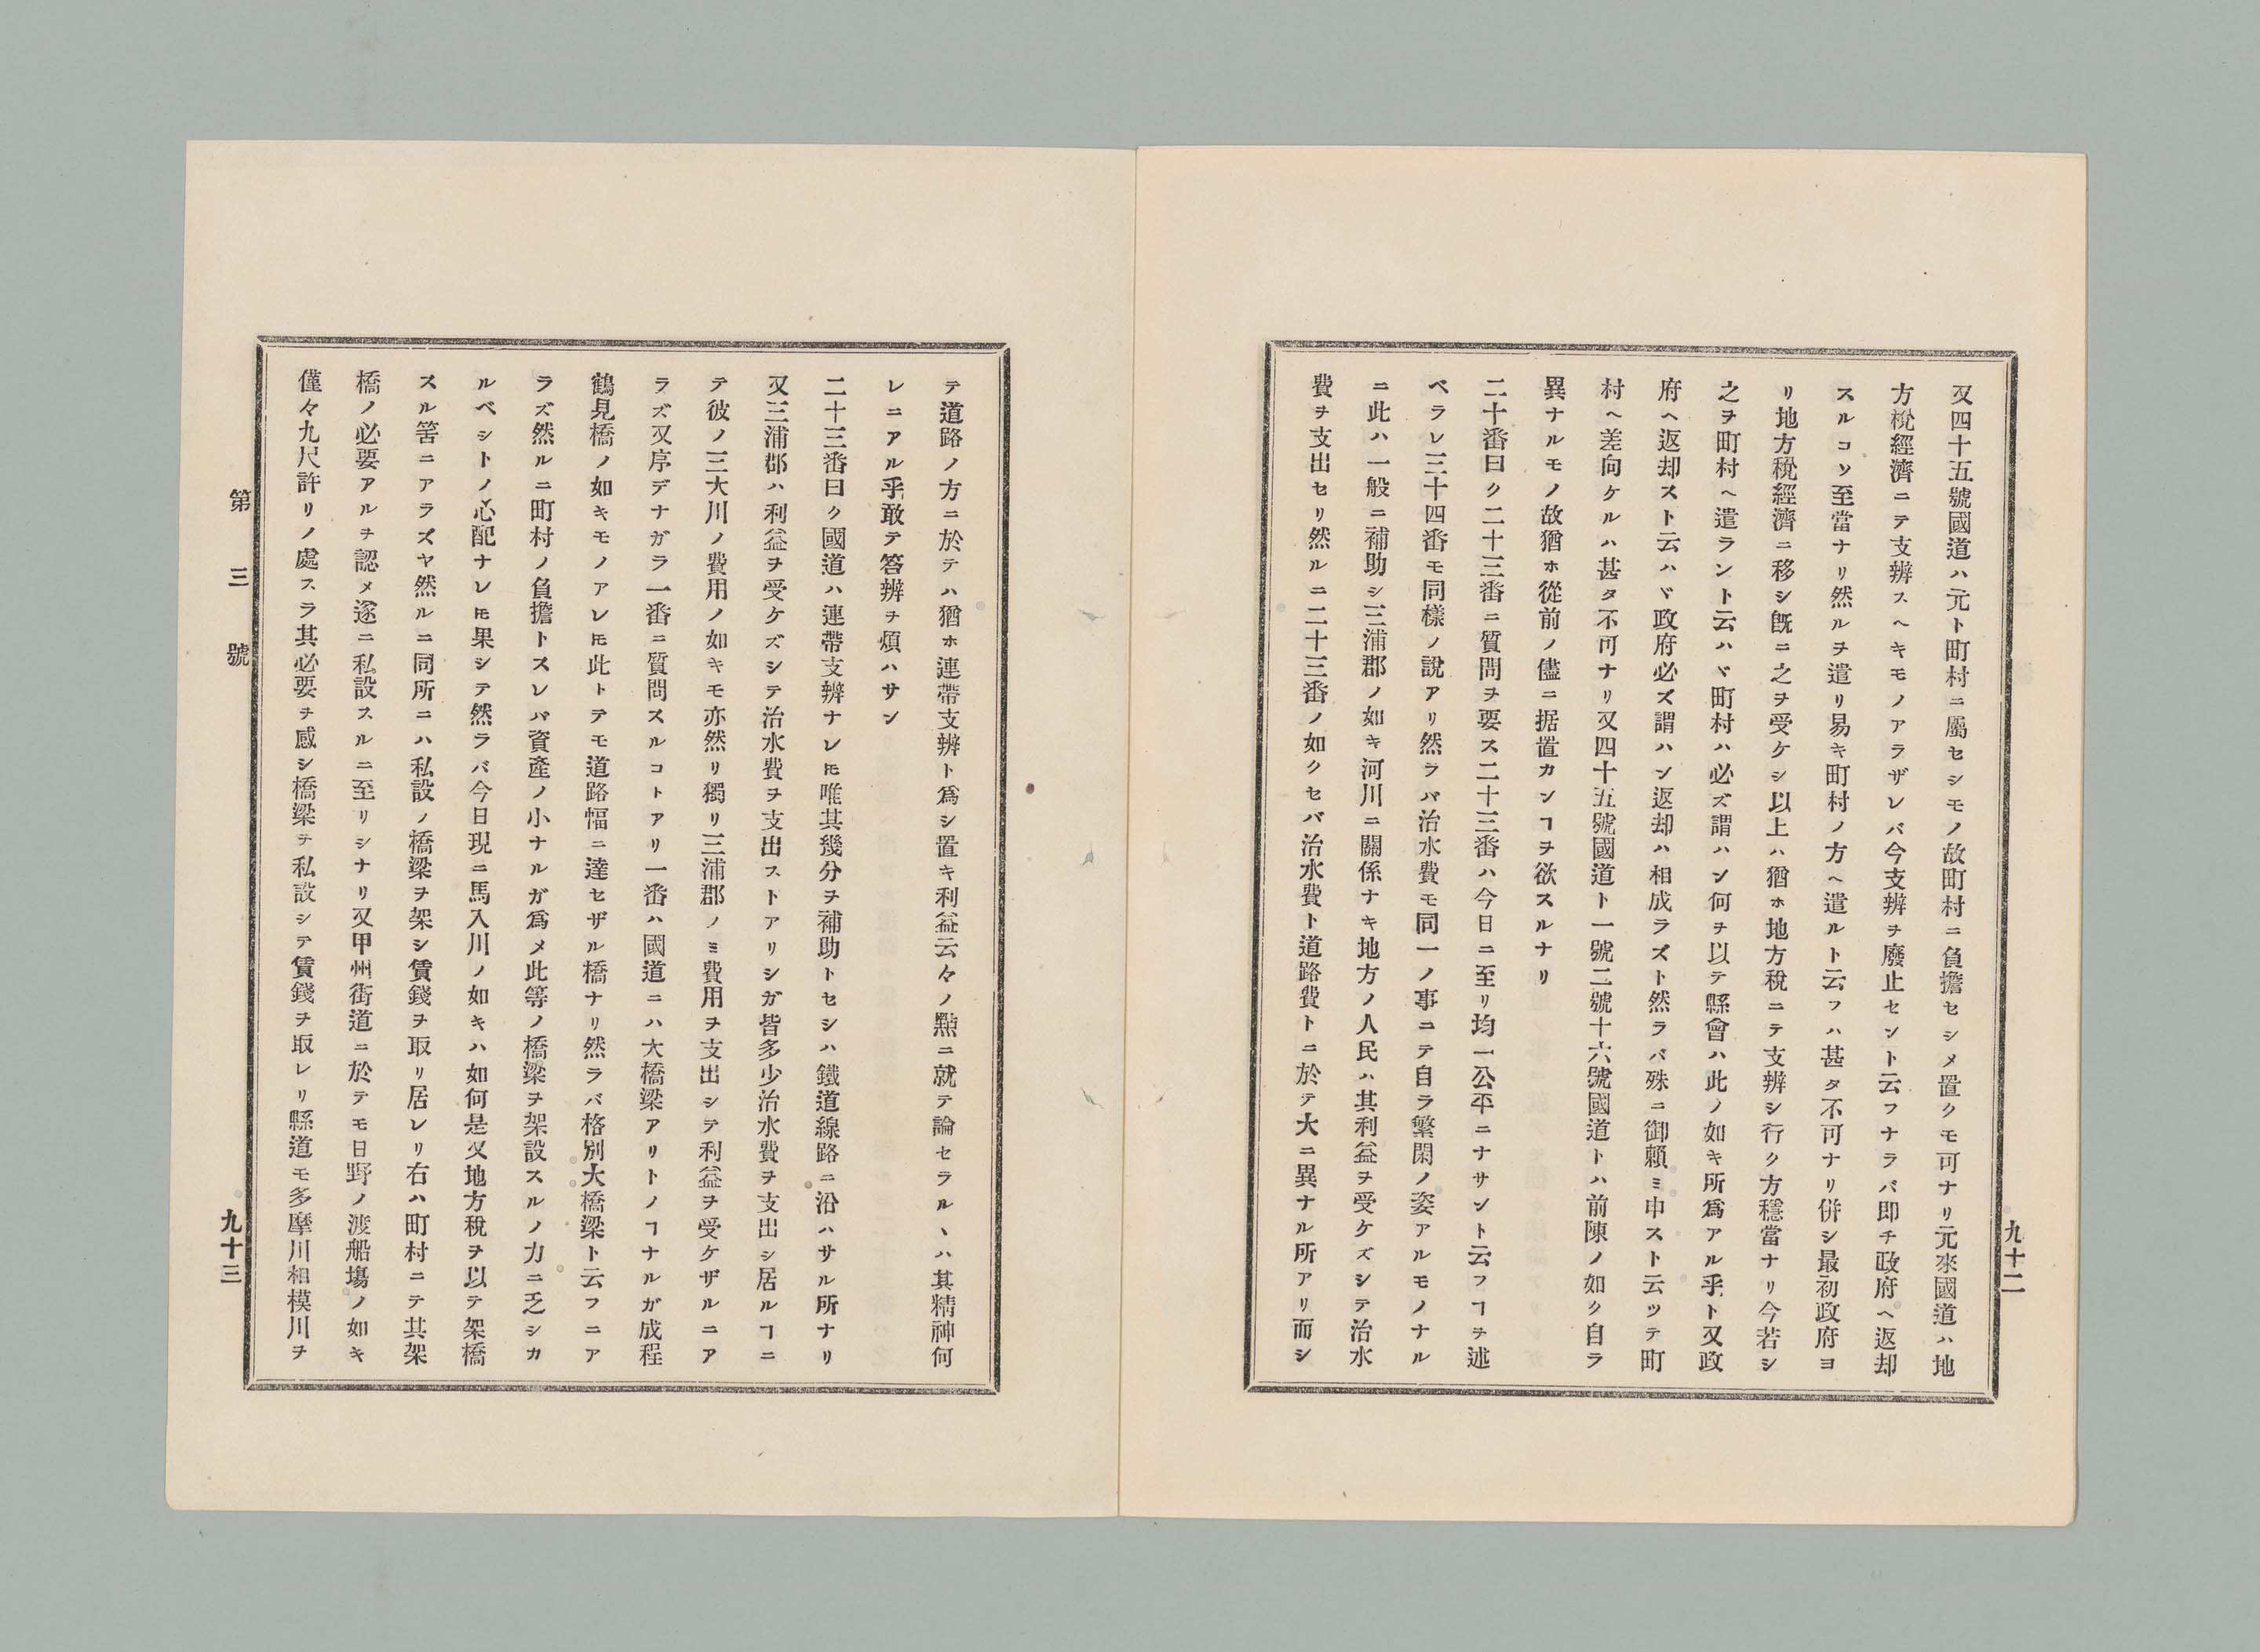 九十二
又四十五號國道ハ元ト町村ニ屬セシモノ故町村ニ負擔セシメ置クモ可ナリ元來國道ハ地
方稅經濟ニテ支辨スヘキモノアラザレバ今支辨ヲ廢止セント云フナラバ即チ政府ヘ返却
スルコソ至當ナリ然ルヲ遣リ易キ町村ノ方ヘ遣ルト云フハ甚タ不可ナリ併シ最初政府ヨ
リ地方稅經濟ニ移シ旣ニ之ヲ受ケシ以上ハ猶ホ地方稅ニテ支辨シ行ク方穩當ナリ今若シ
之ヲ町村ヘ遣ラント云ハヾ町村ハ必ズ謂ハン何ヲ以テ縣會ハ此ノ如キ所爲アル乎ト又政
府ヘ返却スト云ハヾ政府必ズ謂ハン返却ハ相成ラズト然ラバ殊ニ御賴ミ申スト云ツテ町
村ヘ差向ケルハ甚タ不可ナリ又四十五號國道ト一號二號十六號國道トハ前陳ノ如ク自ラ
異ナルモノ故猶ホ從前ノ儘ニ据置カンヿヲ欲スルナリ
二十番曰ク二十三番ニ質問ヲ要ス二十三番ハ今日ニ至リ均一公平ニナサント云フヿヲ述
ベラレ三十四番モ同樣ノ說アリ然ラバ治水費モ同一ノ事ニテ自ラ繁閑ノ姿アルモノナル
ニ此ハ一般ニ補助シ三浦郡ノ如キ河川ニ關係ナキ地方ノ人民ハ其利益ヲ受ケズシテ治水
費ヲ支出セリ然ルニ二十三番ノ如クセバ治水費ト道路費トニ於テ大ニ異ナル所アリ而シ
テ道路ノ方ニ於テハ猶ホ連帶支辨ト爲シ置キ利益云々ノ點ニ就テ論セラルヽハ其精神何
レニアル乎敢テ答辨ヲ煩ハサン
二十三番曰ク國道ハ連帶支辨ナレ𪜈唯其幾分ヲ補助トセシハ鐵道線路ニ沿ハサル所ナリ
又三浦郡ハ利益ヲ受ケズシテ治水費ヲ支出ストアリシガ皆多少治水費ヲ支出シ居ルヿニ
テ彼ノ三大川ノ費用ノ如キモ亦然リ獨リ三浦郡ノミ費用ヲ支出シテ利益ヲ受ケザルニア
ラズ又序デナガラ一番ニ質問スルコトアリ一番ハ國道ニハ大橋梁アリトノヿナルガ成程
鶴見橋ノ如キモノアレ𪜈此トテモ道路幅ニ達セザル橋ナリ然ラバ格別大橋梁ト云フニア
ラズ然ルニ町村ノ負擔トスレバ資產ノ小ナルガ爲メ此等ノ橋梁ヲ架設スルノ力ニ乏シカ
ルベシトノ心配ナレ𪜈果シテ然ラバ今日現ニ馬入川ノ如キハ如何是又地方稅ヲ以テ架橋
スル筈ニアラズヤ然ルニ同所ニハ私設ノ橋梁ヲ架シ賃錢ヲ取リ居レリ右ハ町村ニテ其架
橋ノ必要アルヲ認メ遂ニ私設スルニ至リシナリ又甲州街道ニ於テモ日野ノ渡船塲ノ如キ
僅々九尺許リノ處スラ其必要ヲ感シ橋梁ヲ私設シテ賃錢ヲ取レリ縣道モ多摩川相模川ヲ
第三號
九十三